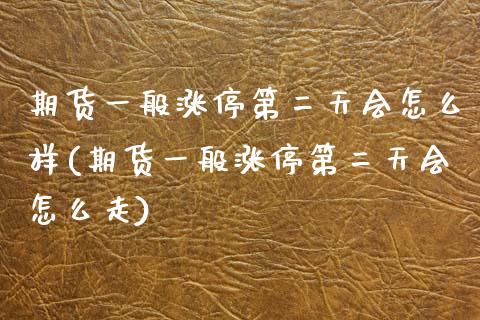 期货一般涨停第二天会怎么
样(期货一般涨停第二天会
怎么走)